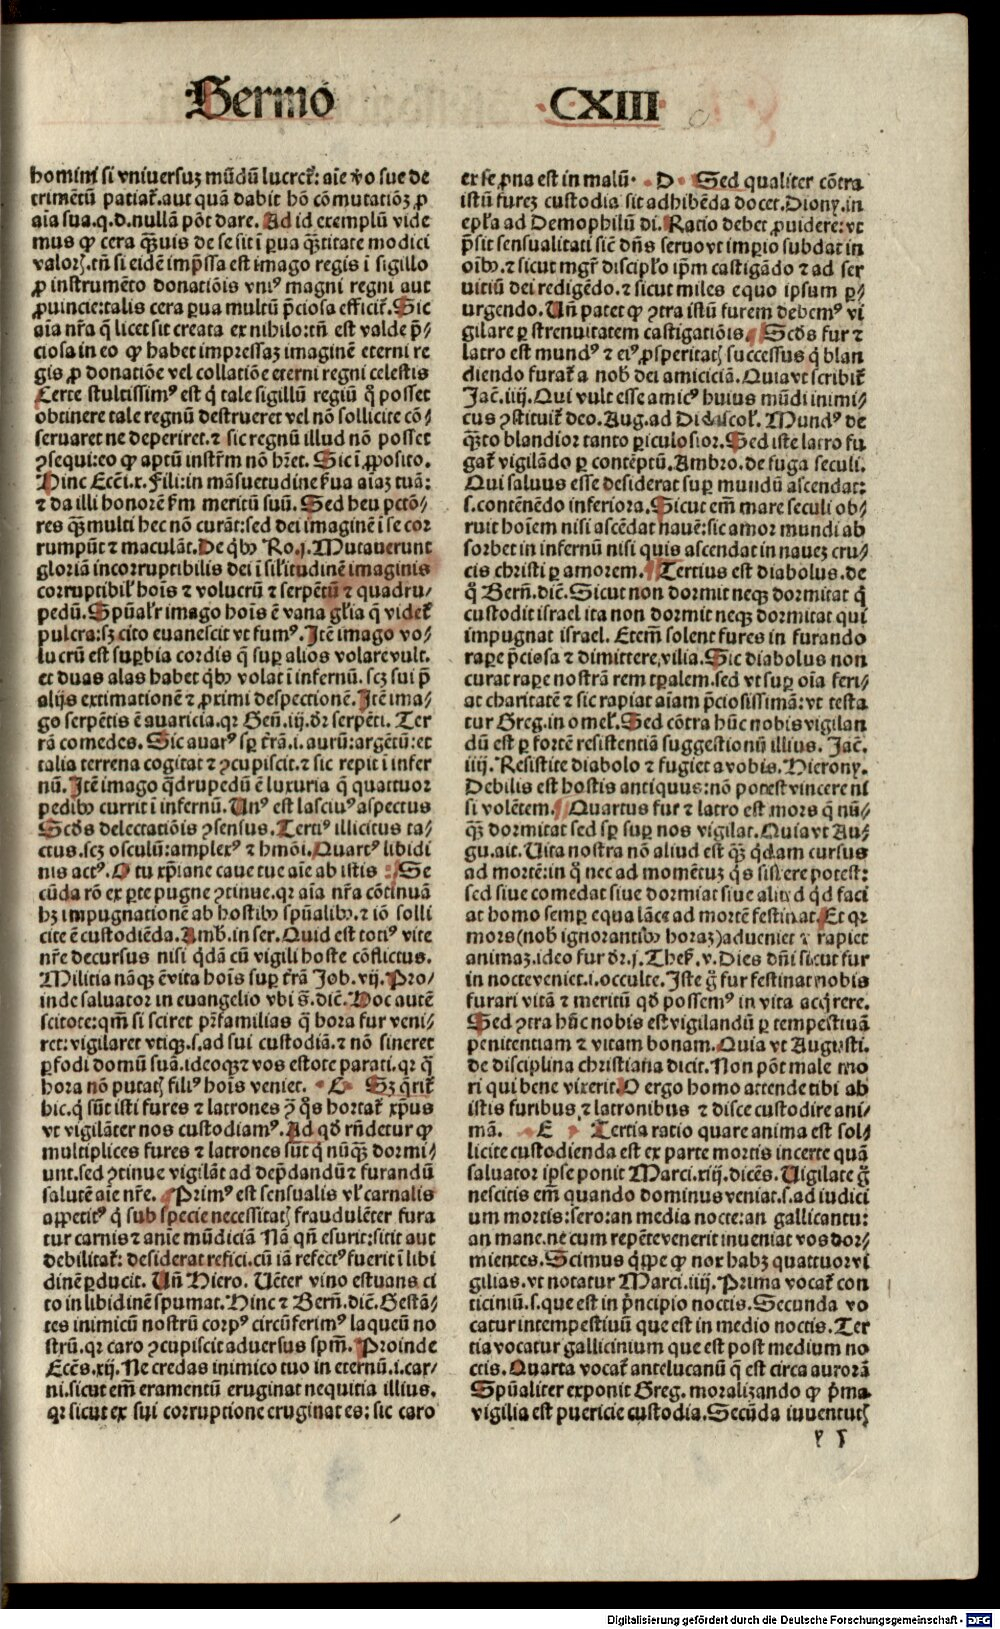 Sermo CXIII
homini si vniuersuz mūdū lucret᷑: aīe v̄o sue de
trimētū patiat᷑. aut quā dabit hō cōmutatiōꝫ ꝓ
aīa sua. q. d. nullā pōt dare. Ad id exemplū vide
mus ꝙ cera qͣꝫuis de se sit ī ꝑua qͣꝫtitate modici
valorꝭ. tn̄ si eidē imp̄ssa est imago regis ī sigillo
ꝓ instrumēto donatiōis vniꝰ magni regni aut
ꝓuincie: talis cera ꝑua multū p̄ciosa efficit᷑. Sic
aīa nr̄a q̄ licet sit creata ex nihilo: tn̄ est valde p̄⸗
ciosa in eo ꝙ habet impressaꝫ imaginē eterni re
gis ꝓ donatiōe vel collatiōe eterni regni celestis
Certe stultissimꝰ est q̇ tale sigillū regiū q̊ posset
obtinere tale regnū destrueret vel nō sollicite cō⸗
seruaret ne deperiret. ⁊ sic regnū illud nō posset
ꝯsequi: eo ꝙ aptū instr̄m nō hr̄et. Sic ī ꝓposito.
Hinc Ecci. x. Fili: in māsuetudine ẜua aīaꝫ tuā:
⁊ da illi honorē ẜm meritū suū. Sed heu pctō⸗
res qͣꝫ multi hec nō curāt: sed dei imaginē ī se cor
rumpūt ⁊ maculāt. De qͥbꝰ Ro. j. Mutauerunt
gloriā incorruptibilis dei ī sil'itudinē imaginis
corruptibil' hoīs ⁊ volucrū ⁊ serpētū ⁊ quadru⸗
pedū. Spūal'r imago hoīs ē vana gl'ia q̄ videt᷑
pulcra: sꝫ cito euanescit vt fumꝰ. Itē imago vo⸗
lucrū est suꝑbia cordis q̄ suꝑ alios volare vult.
et duas alas habet qͥbꝰ volat ī infernū. scꝫ sui p̄
alijs extimationē ⁊ ꝓximi despectionē. Itē ima⸗
go serpētis ē auaricia. qꝛ Gen̄. iij. dr̄ serpēti. Ter
rā comedes. Sic auarꝰ sꝑ t̄rā. i. aurū: argētū: et
talia terrena cogitat ⁊ ꝯcupiscit. ⁊ sic repit ī infer
nū. Itē imago qͣdrupedū ē luxuria q̄ quattuor
pedibꝰ currit ī infernū. Unꝰ est lasciuꝰ aspectus
Scd̄s delectatiōis ꝯsensus. Tertiꝰ illicitus ta⸗
ctus. scꝫ osculū: amplexꝰ ⁊ hmōi. Quartꝰ libidi
nis actꝰ. O tu xp̄iane caue tue aīe ab istis Se
cūda rō ex ꝑte pugne ꝯtinue. qꝛ aīa nr̄a cōtinuā
hꝫ impugnationē ab hostibꝰ spūalibꝰ. ⁊ iō solli
cite ē custodiēda. Amb. in ser. Quid est totiꝰ vite
nr̄e decursus nisi q̄dā cū vigili hoste cōflictus.
Militia nāqꝫ ē vita hoīs suꝑ t̄rā Job. vij. Pro⸗
inde saluator in euangelio vbi s̄. dic̄. Hoc autē
scitote: qm̄ si sciret pr̄familias q̄ hora fur veni⸗
ret: vigilaret vtiqꝫ. s. ad sui custodiā. ⁊ nō sineret
ꝑfodi domū suā. ideoqꝫ ⁊ vos estote parati. qꝛ q̄
hora nō putatꝭ filiꝰ hoīs veniet. C Sꝫ q̄rit᷑
hic. q̇ sūt isti fures ⁊ latrones ꝯ̄ q̊s hortat᷑ xp̄us
vt vigilāter nos custodiamꝰ. Ad qd̄ rn̄detur ꝙ
multiplices fures ⁊ latrones sūt q̇ nūqͣꝫ dormi⸗
unt. sed ꝯtinue vigilāt ad dep̄dandū ⁊ furandū
salutē aīe nr̄e. Primꝰ est sensualis vl' carnalis
appetitꝰ q̇ sub specie necessitatꝭ fraudulēter fura
tur carnis ⁊ anīe mūdiciā Nā qn̄ esurit: sitit aut
debilitat᷑: desiderat refici. cū iā refectꝰ fuerit ī libi
dinē ꝑducit. Un̄ Hiero. Uēter vino estuans ci
to in libidinē spumat. Hinc ⁊ Bern̄. dic̄. Gestā⸗
tes inimicū nostrū corpꝰ circūferimꝰ laqueū no
strū. qꝛ caro ꝯcupiscit aduersus spm̄. Proinde
Ecc̄s. xij. Ne credas inimico tuo in eternū. i. car⸗
ni. sicut em̄ eramentū eruginat nequitia illius.
qꝛ sicut ex sui corruptione eruginat es: sic caro
ex se ꝓna est in malū. D Sed qualiter cōtra
istū fureꝫ custodia sit adhibēda docet. Diony. in
epl'a ad Demophilū di. Ratio debet ꝓuidere: vt
p̄sit sensualitati sic̄ dn̄s seruo vt imꝑio subdat in
oībꝰ. ⁊ sicut mgr̄ discipl'o ip̄m castigādo ⁊ ad ser
vitiū dei redigēdo. ⁊ sicut miles equo ipsum ꝑ⸗
urgendo. Un̄ patet ꝙ ꝯtra istū furem debemꝰ vi
gilare ꝑ strenuitatem castigatiōis. Scd̄s fur ⁊
latro est mundꝰ ⁊ eiꝰ ꝓsperitatꝭ successus q̇ blan
diendo furat᷑ a nob̄ dei amiciciā. Quia vt scribit᷑
Jac̄. iiij. Qui vult esse amicꝰ huius mūdi inimi⸗
cus ꝯstituit᷑ deo. Aug. ad Didascol'. Mundꝰ de
qͣꝫto blandior tanto ꝑiculosior. Sed iste latro fu
gat᷑ vigilādo ꝑ contēptū. Ambro. de fuga seculi.
Qui saluus esse desiderat suꝑ mundū ascendat:
s. contēnēdo inferiora. Sicut em̄ mare seculi ob⸗
ruit hoīem nisi ascēdat nauē: sic amor mundi ab
sorbet in infernū nisi quis ascendat in naueꝫ cru⸗
cis christi ꝑ amorem. Tertius est diabolus. de
q̊ Bern̄. dic̄. Sicut non dormit neqꝫ dormitat q̇
custodit israel ita non dormit neqꝫ dormitat qui
impugnat israel. Etem̄ solent fures in furando
raꝑe p̄ciosa ⁊ dimittere vilia. Sic diabolus non
curat raꝑe nostrā rem tꝑalem. sed vt suꝑ oīa feri⸗
at charitatē ⁊ sic rapiat aīam p̄ciosissimā: vt testa
tur Greg. in omel'. Sed cōtra hūc nobis vigilan
dū est ꝑ fortē resistentiā suggestionū illius. Jac̄.
iiij. Resistite diabolo ⁊ fugiet a vobis. Hierony.
Debilis est hostis antiquus: nō potest vincere ni
si volētem. Quartus fur ⁊ latro est mors q̄ nū⸗
qͣꝫ dormitat sed sꝑ suꝑ nos vigilat. Quia vt Au⸗
gu. ait. Uita nostra nō aliud est qͣꝫ q̄dam cursus
ad mortē: in q̊ nec ad momētuꝫ q̇s sistere potest:
sed siue comedat siue dormiat siue aliud qͥd faci
at homo semꝑ equa lāce ad mortē festinat. Et qꝛ
mors (nob̄ ignorantibꝰ horaꝫ) adueniet ⁊ rapiet
animaꝫ. ideo fur dr̄. j. Thes̄. v. Dies dn̄i sicut fur
in nocte veniet. i. occulte. Iste g̊ fur festinat nobis
furari vitā ⁊ meritū qd̄ possemꝰ in vita acq̇rere.
Sed ꝯtra hūc nobis est vigilandū ꝑ tempestiuā
penitentiam ⁊ vitam bonam. Quia vt Augusti.
de disciplina christiana dicit. Non pōt male mo
ri qui bene vixerit. O ergo homo attende tibi ab
istis furibus ⁊ latronibus ⁊ disce custodire ani⸗
mā. E Tertia ratio quare anima est sol⸗
licite custodienda est ex parte mortis incerte quā
saluator ipse ponit Marci. xiij. dicēs. Uigilate g̊
nescitis em̄ quando dominus veniat. s. ad iudici
um mortis: sero: an media nocte: an gallicantu:
an mane. ne cum repēte venerit inueniat vos dor⸗
mientes. Scimus qͥppe ꝙ nox habꝫ quattuor vi
gilias. vt notatur Marci. iiij. Prima vocat᷑ con
ticiniū. s. que est in p̄ncipio noctis. Secunda vo
catur intempestiuū que est in medio noctis. Ter
tia vocatur gallicinium que est post medium no
ctis. Quarta vocat᷑ antelucanū q̄ est circa aurorā
Spūaliter exponit Greg. moralizando ꝙ p̄ma
vigilia est puericie custodia. Secūda iuuentutꝭ
Digitalisierung gefördert durch die Deutsche Forschungsgemeinschaft - DFG